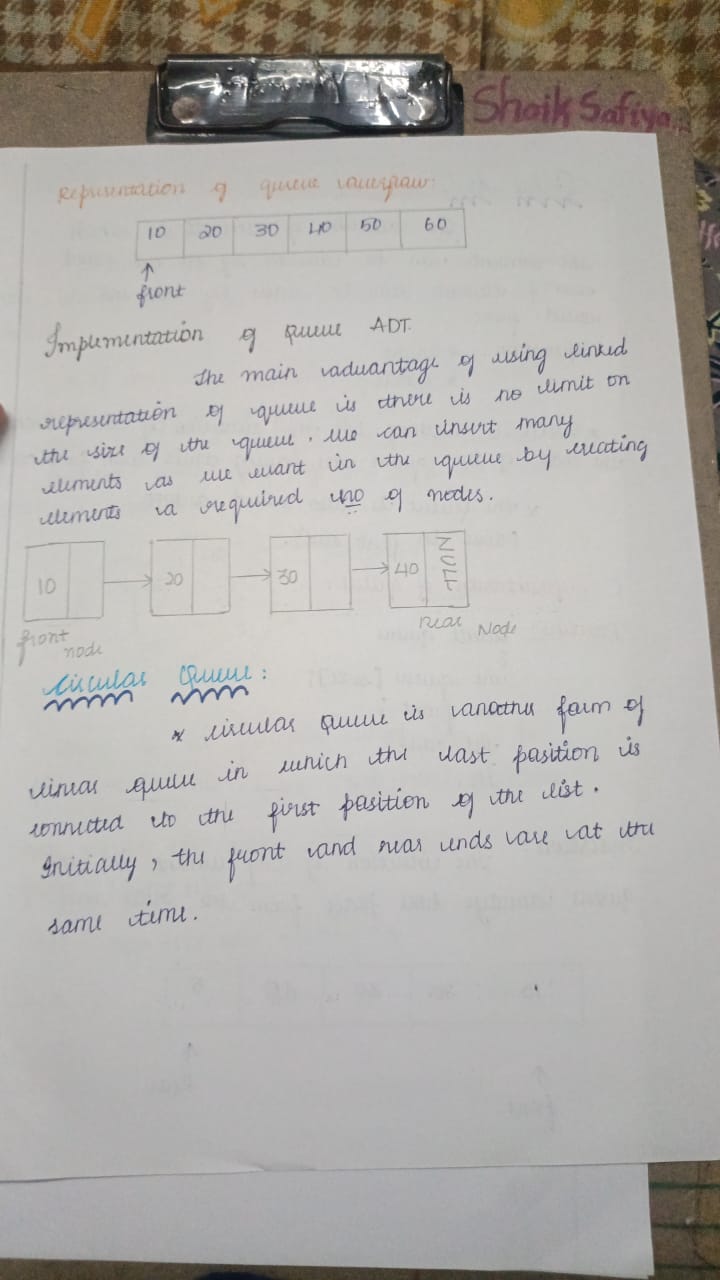 Shaik Safiya
Representation of queue
10 20 30 40 50 60
↑
front
Implementation of queue ADT.
The main advantage of using linked
representation of queue is there is no limit on
the size of the queue. we can insert many
elements as we want in the queue by creating
elements a required no of nodes.
10 → 20 → 30 → 40 NULL
front node
rear Node
Circular Queue:
* circular queue is another form of
linear queue in which the last position is
connected to the first position of the list.
Initially, the front and rear ends are at the
same time.